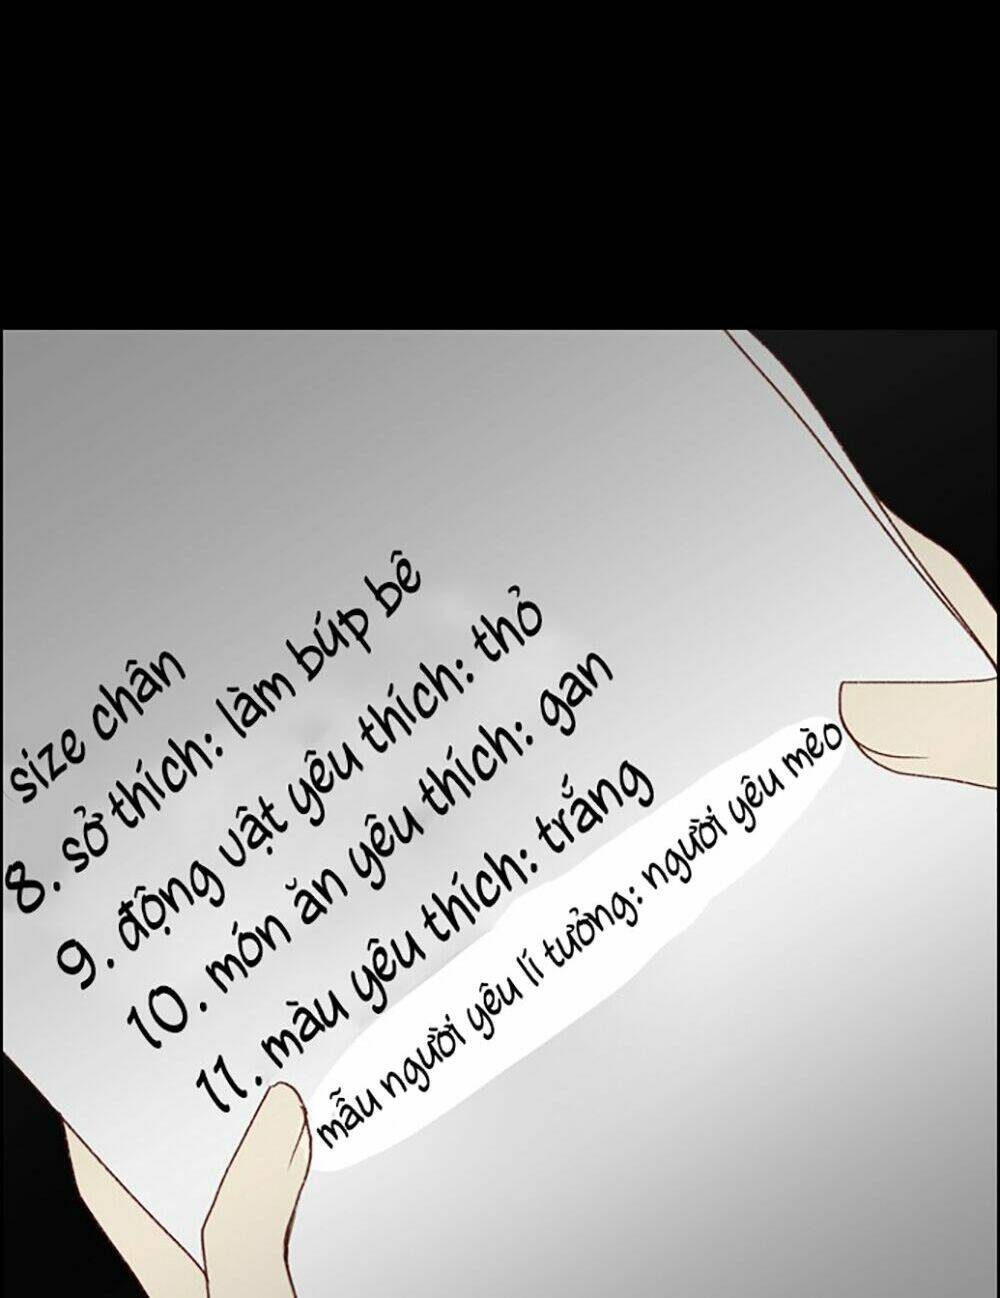 size chân
8. sở thích: làm búp bê
9. động vật yêu thích: thỏ
10. món ăn yêu thích: gan
11. màu yêu thích: trắng
mẫu người yêu lí tưởng: người yêu mèo